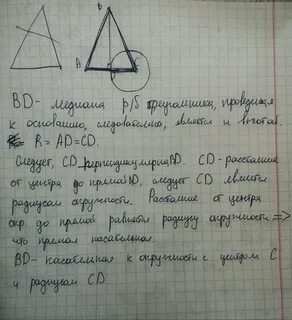 B
A
C
BD - медиана р/б треугольника, проведенная
к основанию, следовательно, является и высотой.
R = AD = CD.
Следует, CD перпендикулярна BD. CD - расстояние
от центра до прямой BD, следует CD является
радиусом окружности. Расстояние от центра
окр до прямой равняется радиусу окружности =>
что прямая касательная.
BD - касательная к окружности с центром C
и радиусом CD.